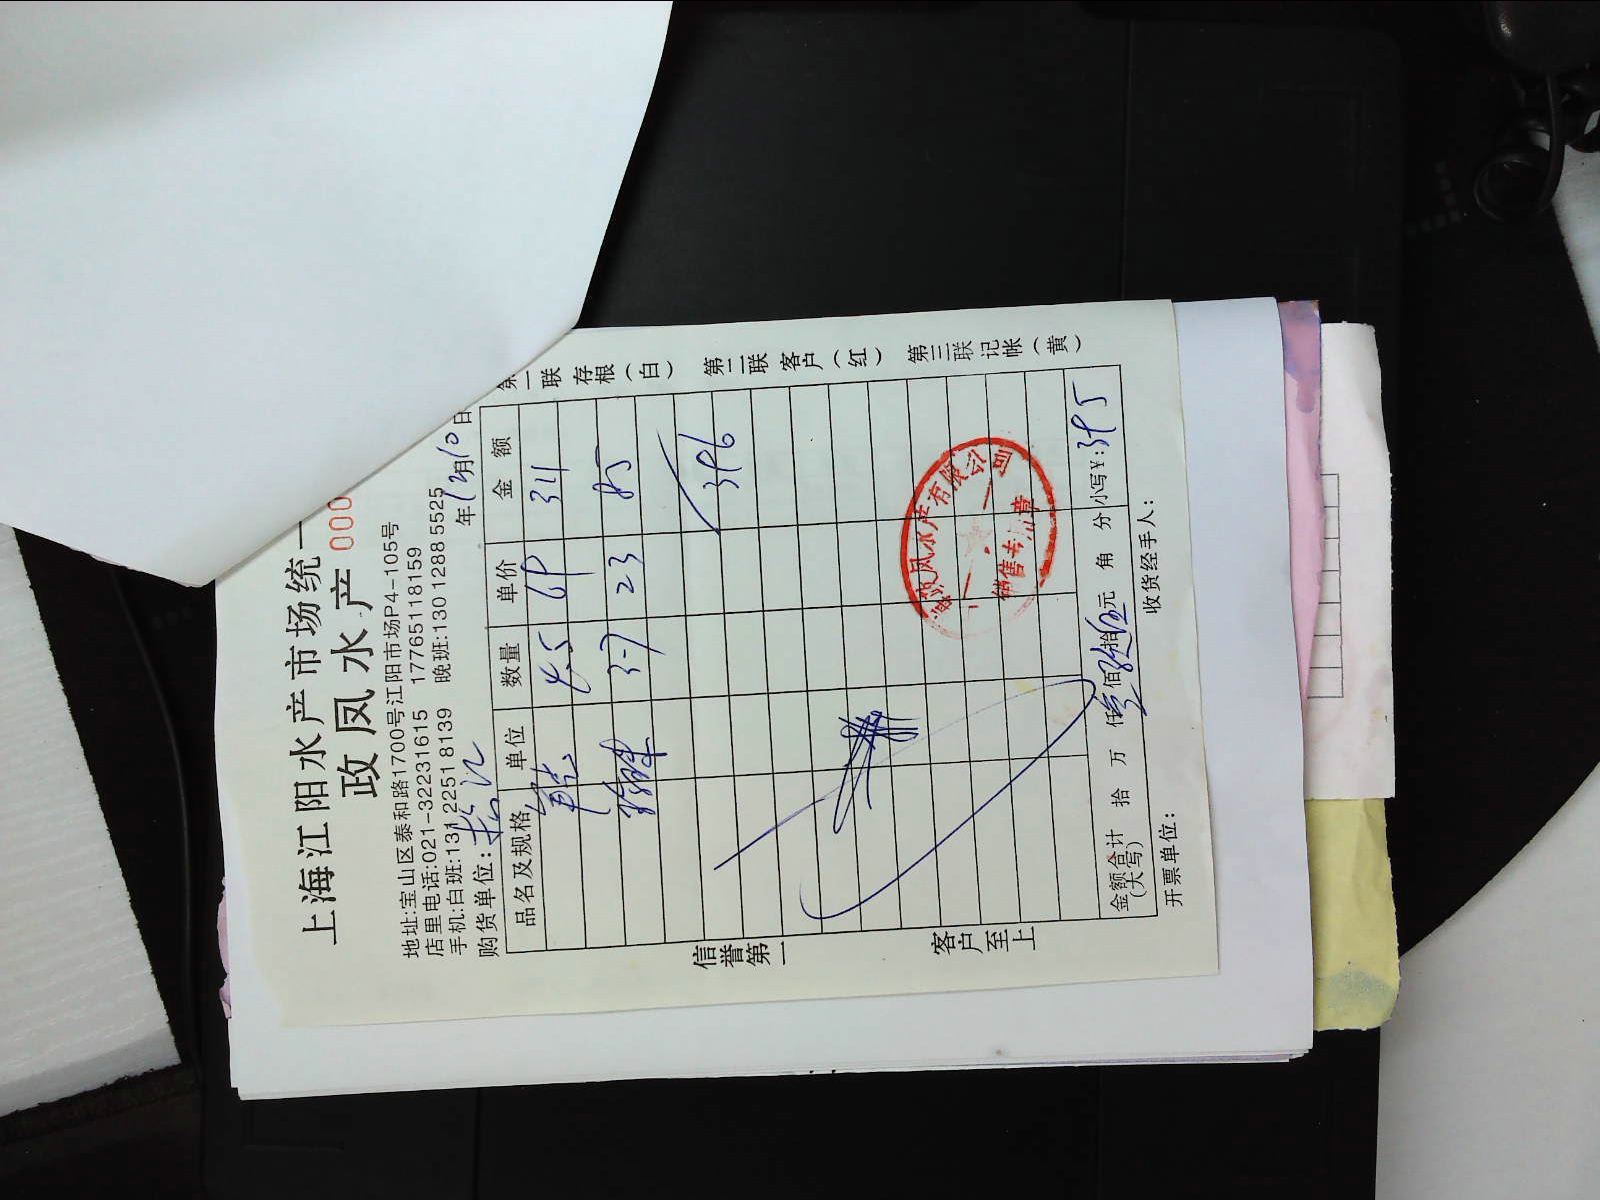 上海江阳水产市场统一
政凤水产 000
地址:宝山区泰和路1700号江阳市场P4-105号
店里电话:021-32231615 17765118159
手机:白班:131 2251 8139 晚班:130 1288 5525
购货单位: 年12月10日
品名及规格 单位 数量 单价 金额
4.5 69 311
3.7 23 85
396
金额合计(大写) 拾 万 仟叁佰玖拾伍元 角 分 小写¥:395
开票单位: 收货经手人:
信誉第一 客户至上
第一联 存根(白) 第二联 客户(红) 第三联 记帐(黄)
政凤水产有限公司
销售专用章